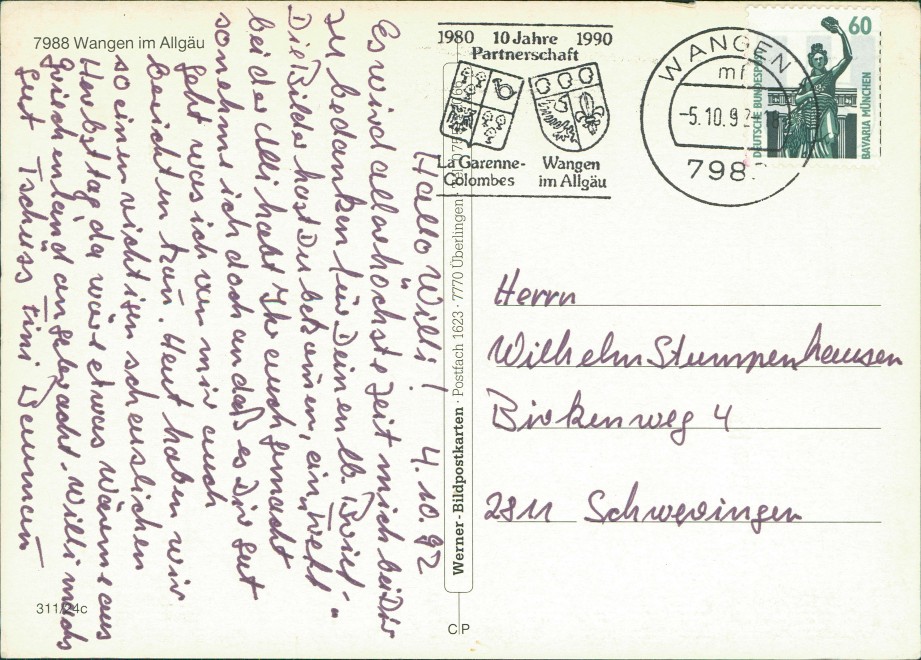 7988 Wangen im Allgäu
1980 10 Jahre 1990
Partnerschaft
La Garenne-
Colombes
Wangen
im Allgäu
WANGEN
-5.10.92
798
60
DEUTSCHE BUNDESPOST
BAVARIA MÜNCHEN
Hallo Willi! 4.10.92
Es wird allerhöchste Zeit mich bei Dir
zu bedanken für Deinen lb. Brief.
Die Bilder hast Du bekommen, ein Wett
beider Uli habt Ihr auch gemacht
so nehme ich doch an daß es Dir gut
geht was ich von mir auch
berichten kan. Heut haben wir
so einen richtigen scheuslichen
Herbsttag da wäre etwas Wärme aus
Griechenland angebracht. Willi machs
gut Tschüss
Werner-Bildpostkarten · Postfach 1623 · 7770 Überlingen
Herrn
Wilhelm Stumpenhausen
Birkenweg 4
2811 Schweringen
311/24c
C P